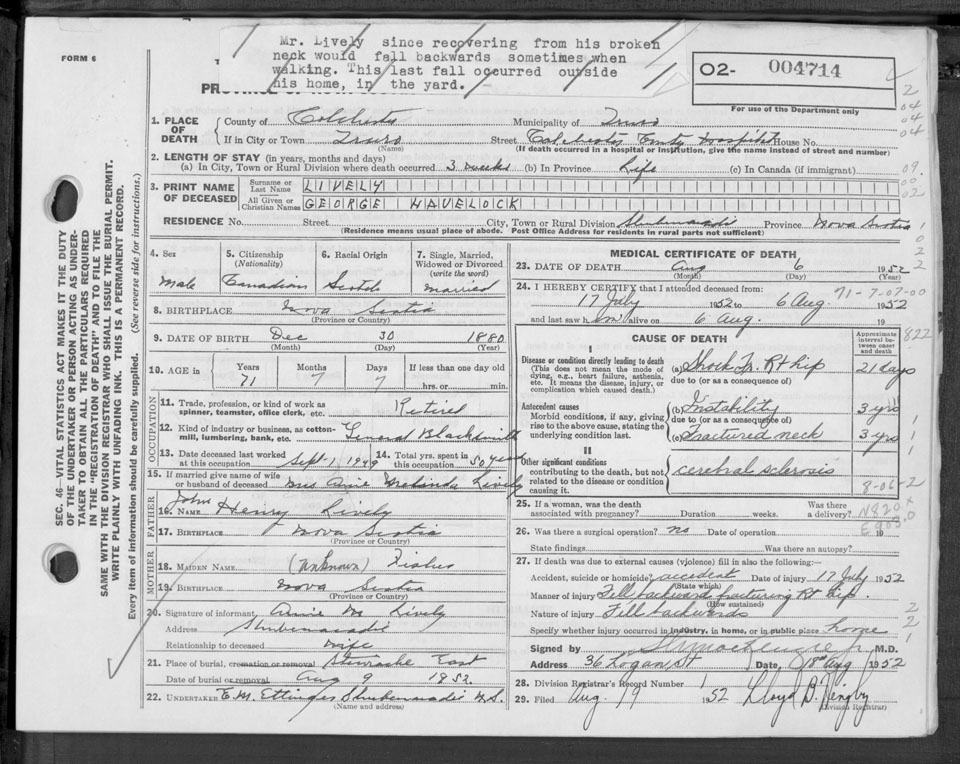 FORM 6
Mr. Lively since recovering from his broken
neck would fall backwards sometimes when
walking. This last fall occurred outside
his home, in the yard.
02- 004714
For use of the Department only
1. PLACE OF DEATH County of Colchester Municipality of Truro
If in City or Town Truro (Name) Street Colchester County Hospital House No.
(If death occurred in a hospital or institution, give the name instead of street and number)
2. LENGTH OF STAY (in years, months and days)
(a) In City, Town or Rural Division where death occurred 3 weeks (b) In Province Life (c) In Canada (if immigrant)
3. PRINT NAME OF DECEASED Surname or Last Name LIVELY
All Given or Christian Names GEORGE HAVELOCK
RESIDENCE No. Street City, Town or Rural Division Shubenacadie Province Nova Scotia
(Residence means usual place of abode. Post Office Address for residents in rural parts not sufficient)
SEC. 46 VITAL STATISTICS ACT MAKES IT THE DUTY
OF THE UNDERTAKER OR PERSON ACTING AS UNDER-
TAKER TO OBTAIN ALL THE PARTICULARS REQUIRED
IN THE "REGISTRATION OF DEATH" AND TO FILE THE
SAME WITH THE DIVISION REGISTRAR WHO SHALL ISSUE THE BURIAL PERMIT.
WRITE PLAINLY WITH UNFADING INK. THIS IS A PERMANENT RECORD.
Every item of information should be carefully supplied. (See reverse side for instructions.)
4. Sex Male
5. Citizenship (Nationality) Canadian
6. Racial Origin Scotch
7. Single, Married, Widowed or Divorced (write the word) married
8. BIRTHPLACE Nova Scotia
(Province or Country)
9. DATE OF BIRTH Dec 30 1880
(Month) (Day) (Year)
10. AGE in Years 71 Months 7 Days 7 If less than one day old hrs. or min.
OCCUPATION
11. Trade, profession, or kind of work as spinner, teamster, office clerk, etc. Retired
12. Kind of industry or business, as cotton-mill, lumbering, bank, etc. General Blacksmith
13. Date deceased last worked at this occupation Sept-1 1949 14. Total yrs. spent in this occupation 50 years
15. If married give name of wife or husband of deceased Mrs Annie Melinda Lively
FATHER
16. NAME John Henry Lively
17. BIRTHPLACE Nova Scotia
(Province or Country)
MOTHER
18. MAIDEN NAME (Unknown) Fisher
19. BIRTHPLACE Nova Scotia
(Province or Country)
20. Signature of informant Annie M Lively
Address Shubenacadie
Relationship to deceased wife
21. Place of burial, cremation or removal East
Date of burial or removal Aug 9 1952
22. UNDERTAKER E.M. Ettinger Shubenacadie N.S.
(Name and address)
MEDICAL CERTIFICATE OF DEATH
23. DATE OF DEATH Aug 6 1952
(Month) (Day) (Year)
24. I HEREBY CERTIFY that I attended deceased from: 71-7-07-00
17 July 1952 to 6 Aug. 1952
and last saw him alive on 6 Aug. 19
CAUSE OF DEATH
Approximate interval between onset and death
I
Disease or condition directly leading to death
(This does not mean the mode of dying, e.g., heart failure, asthenia, etc. It means the disease, injury, or complication which caused death.)
(a) Shock Fr. Rt hip 21 days
due to (or as a consequence of)
Antecedent causes
Morbid conditions, if any, giving rise to the above cause, stating the underlying condition last.
(b) Instability 3 yrs
due to (or as a consequence of)
(c) Fractured neck 3 yrs
II
Other significant conditions
contributing to the death, but not related to the disease or condition causing it.
cerebral sclerosis
8-06-2
25. If a woman, was the death associated with pregnancy? Duration weeks. Was there a delivery? N820
26. Was there a surgical operation? no Date of operation 19 E903.0
State findings Was there an autopsy?
27. If death was due to external causes (violence) fill in also the following:
Accident, suicide or homicide? accident Date of injury 17 July 1952
(State which)
Manner of injury Fell backward fracturing Rt hip.
(How sustained)
Nature of injury Fell backwards
Specify whether injury occurred in industry, in home, or in public place home
Signed by M.D.
Address 36 Logan St Date, 1952
28. Division Registrar's Record Number 1
29. Filed Aug. 1952 Lloyd D.
(Division Registrar)